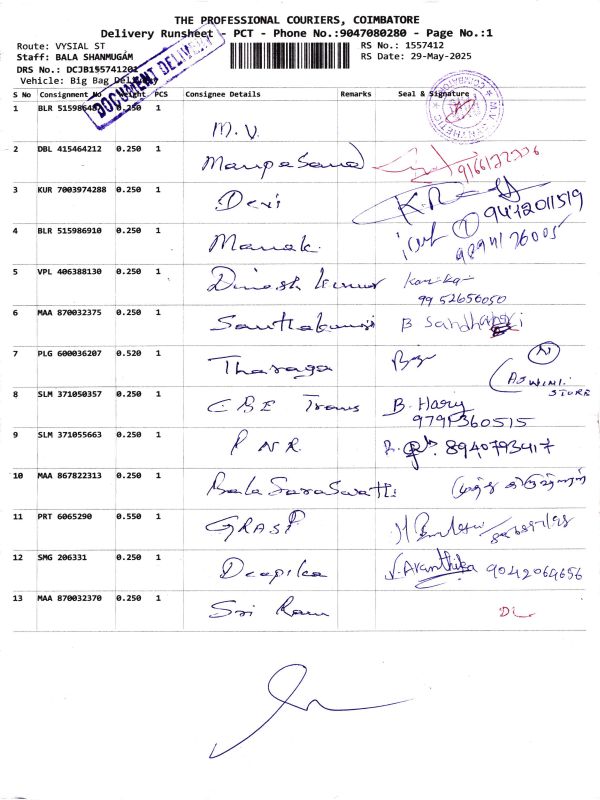 THE PROFESSIONAL COURIERS, COIMBATORE
Delivery Runsheet - PCT - Phone No.:9047080280 - Page No.:1
Route: VYSIAL ST RS No.: 1557412
Staff: BALA SHANMUGAM RS Date: 29-May-2025
DRS No.: DCJB155741201
Vehicle: Big Bag Delivery
DOCUMENT DELIVERY
S No Consignment No Weight PCS Consignee Details Remarks Seal & Signature
1 BLR 515986487 0.250 1 M.V.
2 DBL 415464212 0.250 1 9166122226
3 KUR 7003974288 0.250 1 Devi 9412011519
4 BLR 515986910 0.250 1 Manak. 9894176005
5 VPL 406388130 0.250 1 Dinesh Kumar 9952656050
6 MAA 870032375 0.250 1 B Sandhana
7 PLG 600036207 0.520 1 Tharaga ASWINI STORE
8 SLM 371050357 0.250 1 CBE Trans B. Hariy
9791360515
9 SLM 371055663 0.250 1 PNR. 8940793417
10 MAA 867822313 0.250 1 Bala Saraswathi
11 PRT 6065290 0.550 1 GRASP
12 SMG 206331 0.250 1 Deepika V. Avanthika 9042064656
13 MAA 870032370 0.250 1 Sri Ram DL